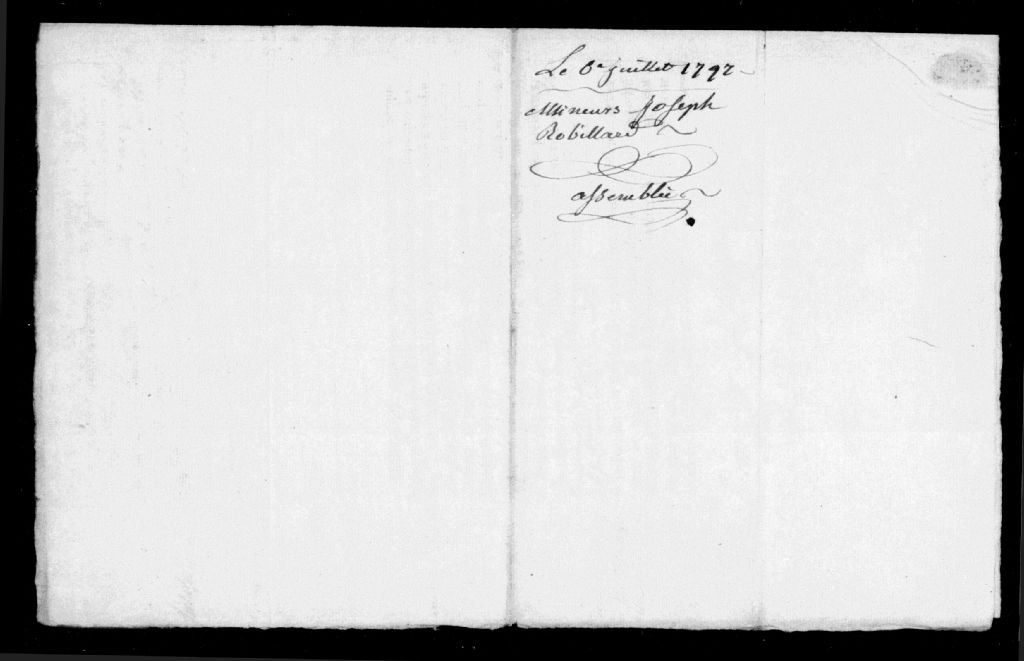 Le 6e juillet 1792
Mineurs Joseph
Robillard
assemblée